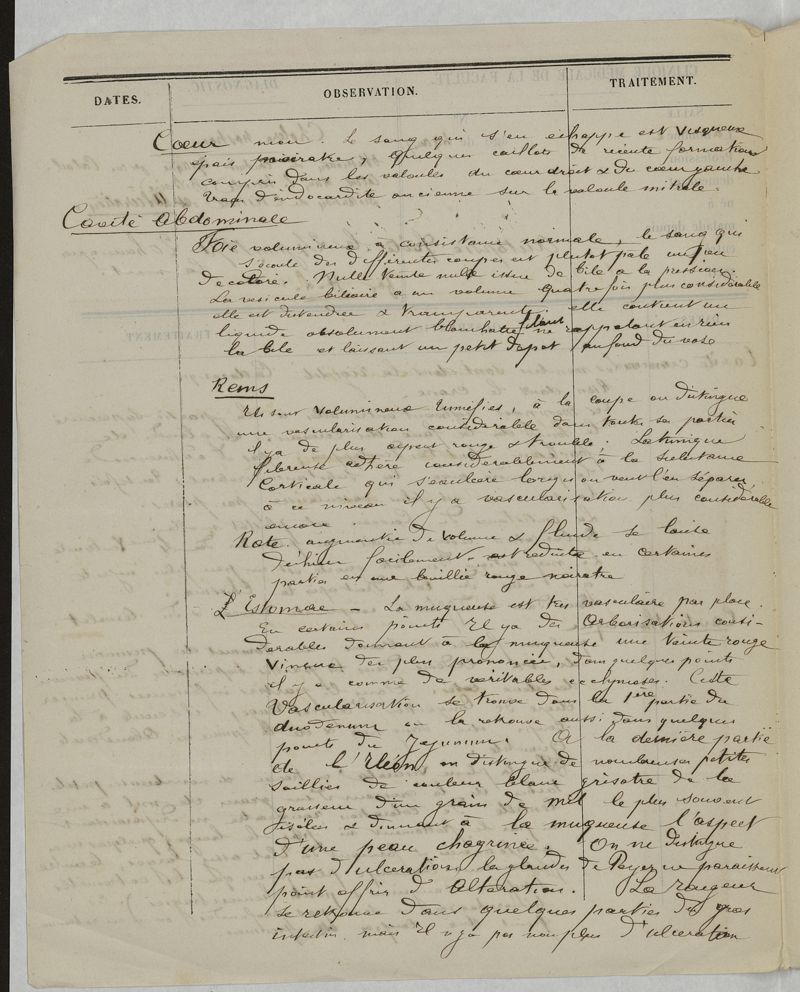 DATES.
OBSERVATION.
TRAITEMENT.
Cœur mou. Le sang qui s'en échappe est visqueux
épais poisseux, quelques caillots de récente formation
compris dans les valvules du cœur droit & du cœur gauche
Traces d'endocardite ancienne sur la valvule mitrale.
Cavité Abdominale
Foie volumineux, à consistance normale, le sang qui
s'écoule des différentes coupes est plutôt pâle un peu
décoloré. Nulle teinte nulle issue de bile à la pression.
La vésicule biliaire a un volume quatre fois plus considérable
elle est distendue & transparente, elle contient un
liquide absolument blanchâtre filant ne rappelant en rien
la bile et laissant un petit dépôt au fond du vase
Reins
Ils sont volumineux tuméfiés, à la coupe on distingue
une vascularisation considérable dans toutes ses parties
il y a de plus aspect rouge & trouble. La tunique
fibreuse adhère considérablement à la substance
corticale qui s'excorie lorsqu'on veut l'en séparer,
à ce niveau il y a vascularisation plus considérable
encore.
Rate augmentée de volume & fluide se laisse
déchirer facilement est réduite en certaines
parties en une bouillie rouge noirâtre
L'Estomac – La muqueuse est très vasculaire par place.
En certains points il y a des arborisations consi-
dérables donnant à la muqueuse une teinte rouge
vineuse des plus prononcées, dans quelques points
il y a comme de véritables ecchymoses. Cette
vascularisation se trouve dans la 1ère partie du
duodenum on la retrouve aussi dans quelques
points du Jejunum. A la dernière partie
de l'Iléon, on distingue de nombreuses petites
saillies de couleur blanc grisâtre de la
grosseur d'un grain de mil le plus souvent
isolées & donnant à la muqueuse l'aspect
d'une peau chagrinée. On ne distingue
pas d'ulcération les glandes de Peyer ne paraissent
point offrir d'altération. La rougeur
se retrouve dans quelques parties du gros
intestin, mais il n'y a pas non plus d'ulcération